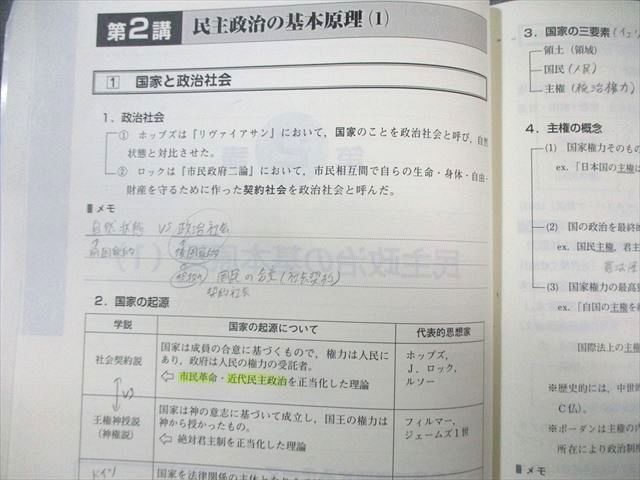 第2講 民主政治の基本原理(1)
1 国家と政治社会
1．政治社会
① ホッブズは『リヴァイアサン』において，国家のことを政治社会と呼び，自然
状態と対比させた。
② ロックは『市民政府二論』において，市民相互間で自らの生命・身体・自由・
財産を守るために作った契約社会を政治社会と呼んだ。
メモ
自然状態 VS 政治社会
前国家的
国民の合意(社会契約)
契約社会
2．国家の起源
学説 国家の起源について 代表的思想家
社会契約説
国家は成員の合意に基づくもので，権力は人民に
あり，政府は人民の権力の受託者。
⇦ 市民革命・近代民主政治を正当化した理論
ホッブズ，
J．ロック，
ルソー
VS
王権神授説
（神権説）
国家は神の意志に基づいて成立し，国王の権力は
神から授かったもの。
⇦ 絶対君主制を正当化した理論
フィルマー，
ジェームズ1世
ドイツ
国家を法律関係の主体と
3．国家の三要素（イェリ
領土（領域）
国民（人民）
主権（統治権力）
4．主権の概念
(1) 国家権力そのもの
ex.「日本国の主権は
(2) 国の政治を最終的
ex. 国民主権，君主
(3) 国家権力の最高独
ex.「自国の主権を
国際法上の主権
※歴史的には，中世
C仏)。
※ボーダンは主権の内
所在により政治制度
メモ